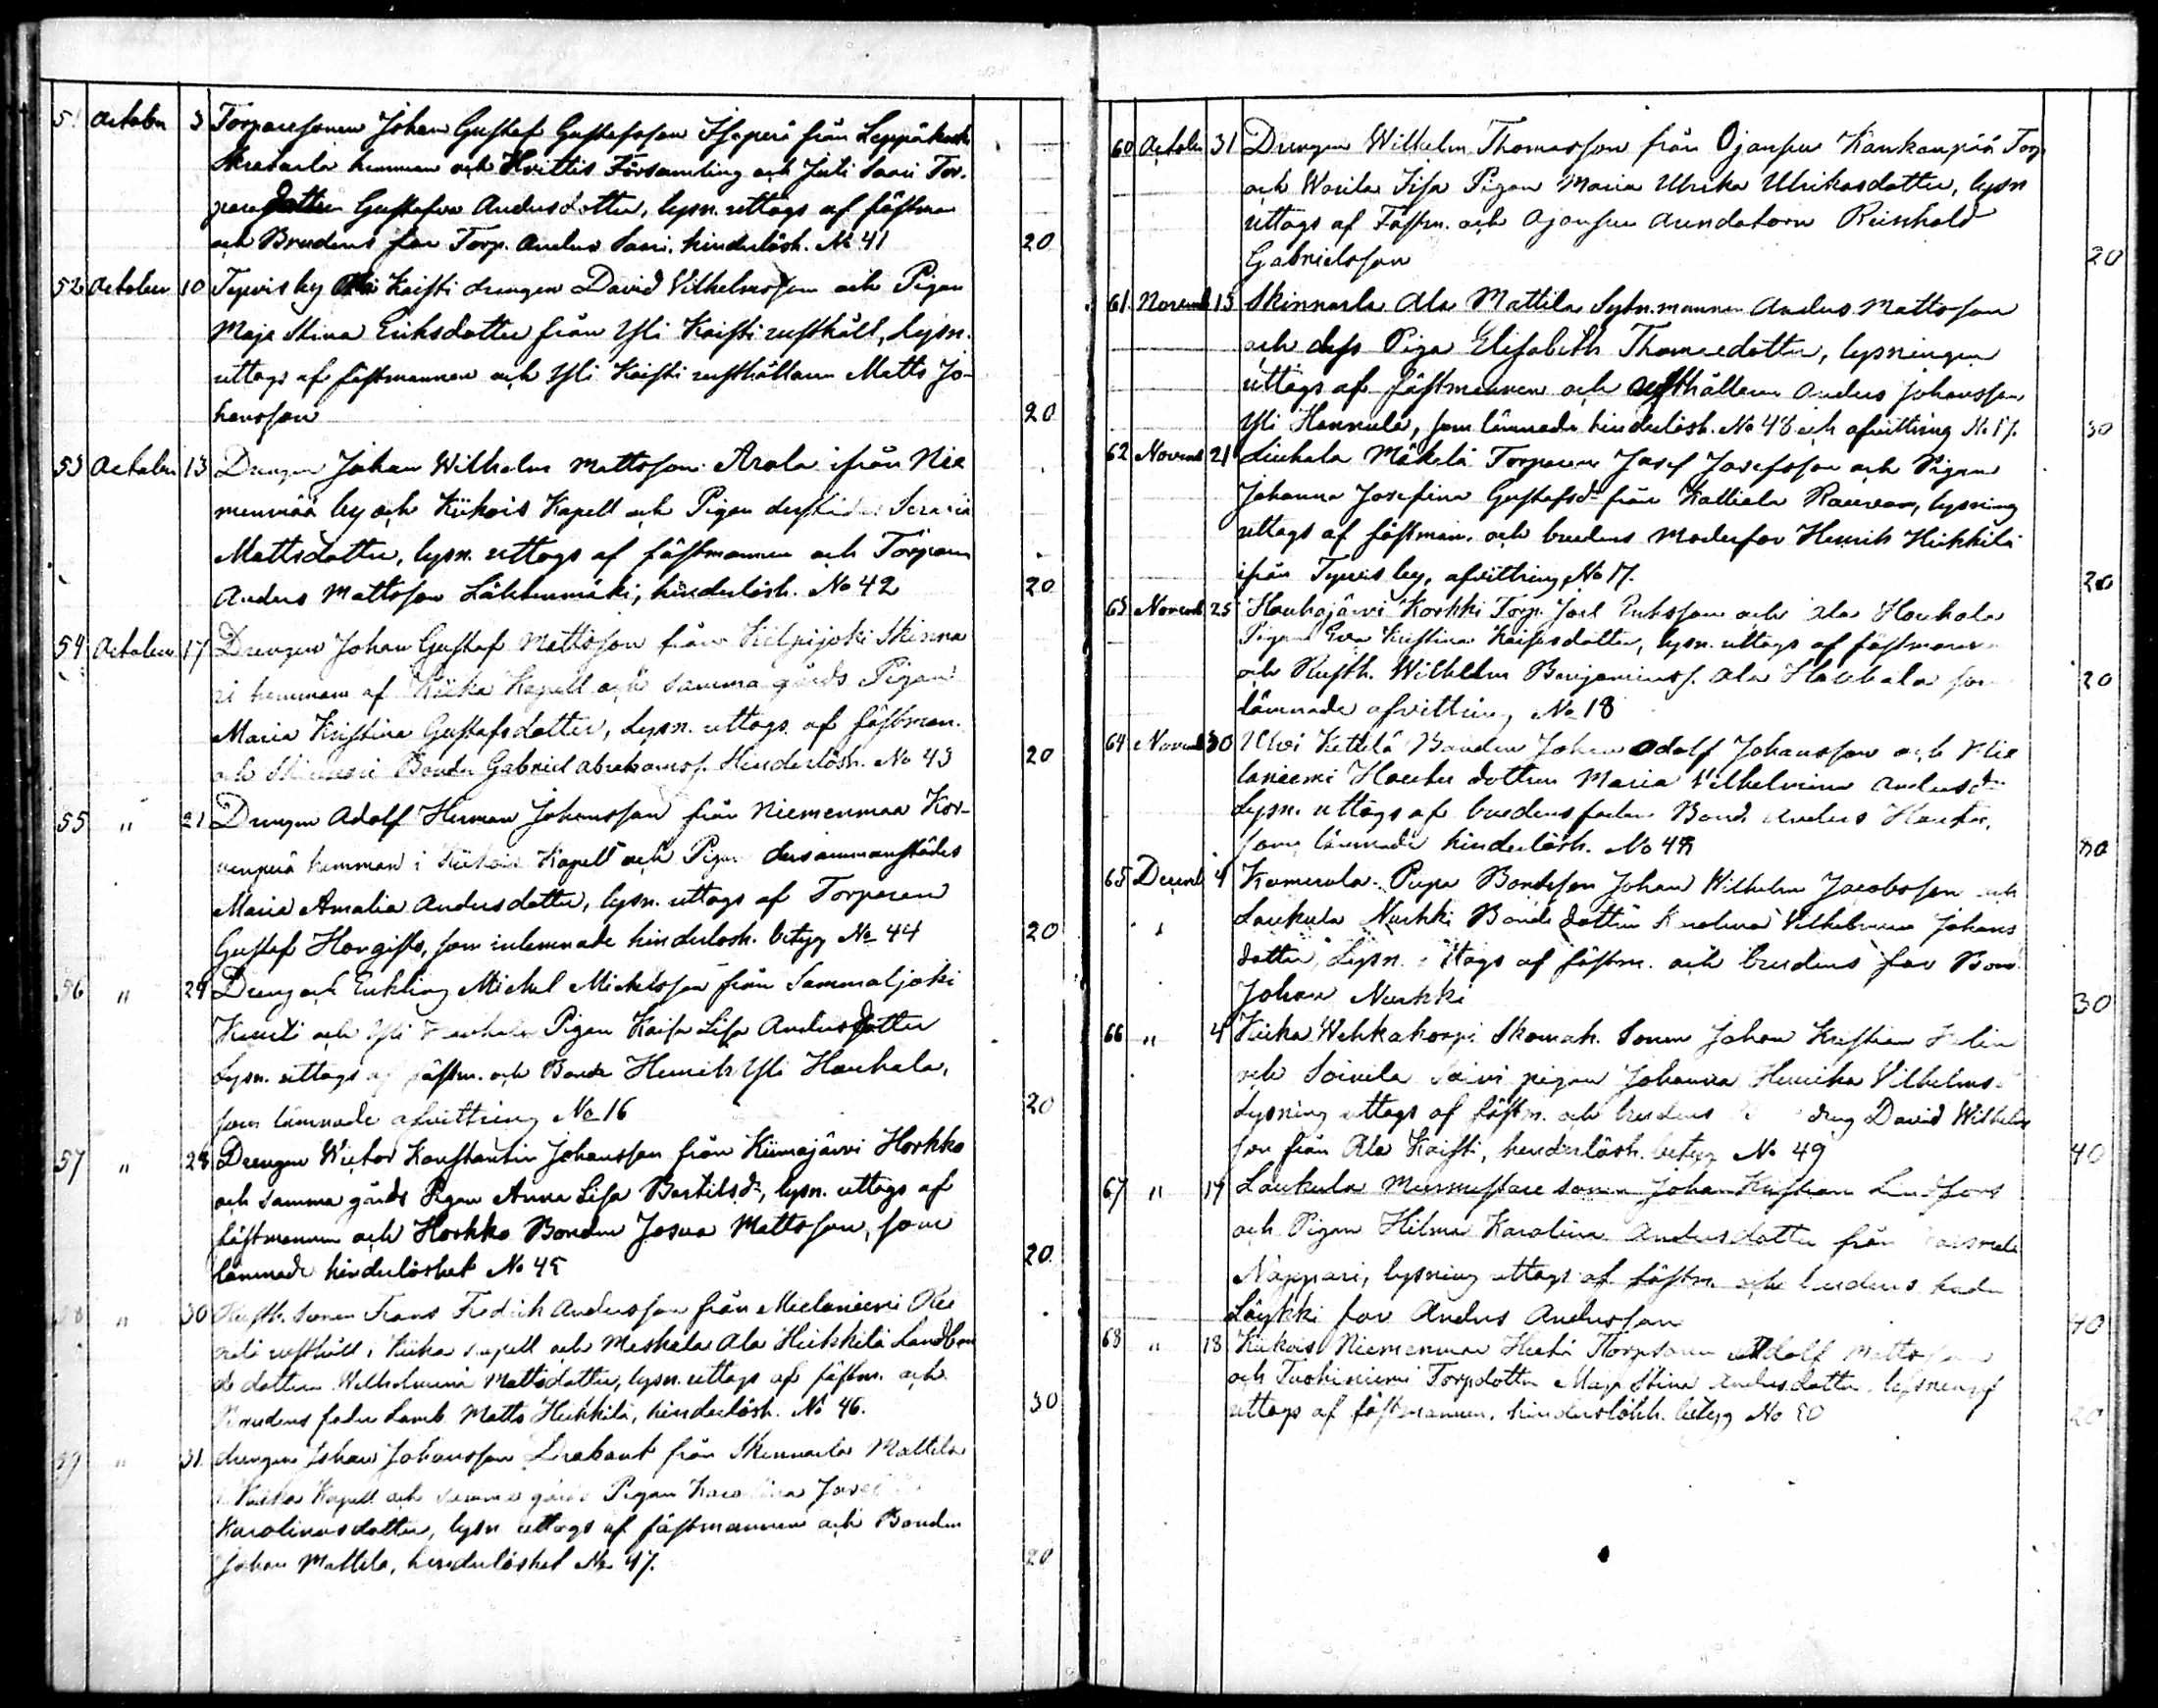 51 October 3 Torparesonen Johan Gustaf Gustafsson Isoperä från Leppäkoski
Skrabarla hemman och Hvittis Församling och Juti Saari Tor-
paredottren Gustafva Andersdotter, lysn. uttogs af fästman
och Brudens far Torp. Anders Saari, hinderlösh. No 41 20
52 October 10 Tyrvis by Ali Kaisti drengen David Vilhelmsson och Pigan
Maja Stina Eriksdotter från Yli Kaisti rusthåll, lysn.
uttogs af fästmannen och Yli Kaisti rusthållaren Matts Jo-
hansson 20
53 October 13 Drengen Johan Wilhelm Mattsson Arola ifrån Nie
menmaa by och Kiikois Kapell och Pigan
Mattsdotter, lysn. uttogs af fästmannen och Torparen
Anders Mattsson Lähteenmäki, hinderlösh. No 42 20
54 October 17 Drengen Johan Gustaf Mattsson från Kilpijoki Skinna
ri hemman af Kiika Kapell och samma gårds Pigan
Maria Kristina Gustafsdotter, Lysn. uttogs af fästman.
och Skinnari Bonden Gabriel Abrahamss. Hinderlösh. No 43 20
55 " 21 Drengen Adolf Herman Johansson från Niemenmaa Kor-
venperä hemman i Kiikois Kapell och Pigan dersammanstädes
Maria Amalia Andersdotter, lysn. uttogs af Torparen
Gustaf Hongisto, som inlemnade hinderlösh. betyg No 44 20
56 " 24 Dreng och Enkling Mickel Mickelsson från Sammaljoki
och Yli Houhala Pigan Kaisa Lisa Andersdotter
Lysn. uttogs af fästm. och Bonde Henrik Yli Houhala,
som lämnade afvittring No 16 20
57 " 28 Drengen Victor Konstantin Johansson från Kiimajärvi Horkko
och samma gårds Pigan Anna Lisa Bertilsd., lysn. uttogs af
fästmannen och Horkko Bonden Josua Mattsson, som
lämnade hinderlöshet No 45 20
58 " 30 Rusth. sonen Frans Fredrik Andersson från Mielaniemi Rei
rusthåll i Kiika kapell och Meskala Ala Heikkilä Landbon
de dottren Wilhelmina Mattsdotter, lysn. uttogs af fästm. och
Brudens fader Lamb. Matts Heikkilä, hinderlösh. No 46. 30
59 " 31 drengen Johan Johansson Drabant från Skinnarla Mattila
i Kiika Kapell och samma gårds Pigan Karolina
Karolinasdotter, lysn uttogs af fästmannen och Bonden
Johan Mattila, hinderlöshet No 47. 20
60 October 31 Drengen Wilhelm Thomasson från Ojansuu Kankaanpää Torp
och Warila Sisa Pigan Maria Ulrika Ulrikasdotter, lysn
uttogs af Fästm. och Ojansuu Arendatorn Reinhold
Gabrielsson 20
61 Novemb 13 Skinnarla Ala Mattila Sytn.mannen Anders Mattsson
och dess Piga Elisabeth Thomasdotter, lysningen
uttogs af fästmannen och rusthållaren Anders Johansson
Yli Hannula, som lämnade hinderlösh. No 48 och afvittring No 17. 30
62 Novemb 21 Liuhala Mäkelä Torparen Josef Josefsson och Pigan
Johanna Josefina Gustafsd. från Kalliala Rauvan, lysning
uttogs af fästman. och brudens Moderfar Henrik Heikkilä
ifrån Tyrvis by, afvittring No 17. 20
63 Novemb 25 Houhajärvi Korkki Torp. Joel Eriksson och Ala Houhala
Pigan Eva Kristina Kaisasdotter, lysn. uttogs af fästmannen
och Rusth. Wilhelm Benjaminss. Ala Houhala som
lämnade afvittring No 18 20
64 Novemb 30 Kettelä Bonden Johan Adolf Johansson och Mie
laniemi Hauta dottren Maria Vilhelmina Andersd.
Lysn. uttogs af brudens fader Bond. Anders Hauta,
som lämnade hinderlösh. No 48 30
65 Decemb 4 Kamerola Pirpa Bondeson Johan Wilhelm Jacobsson och
Laukula Nurkki Bonde dottren Karolina Vilhelmina Johans
dotter, Lysn. uttogs af fästm. och brudens far Bond.
Johan Nurkki 30
66 " 4 Kiika Wehkakorpi Skomak. Sonen Johan Kristian
och Soinila Soini pigan Johanna Henrika Vilhelmsd.
Lysning uttogs af fästm. och brudens dreng David Wilhelms
son från Ala Kaisti, hinderlösh. betyg No 49 40
67 " 17 Laukula Murmestare sonen Johan Kristian Lindfors
och Pigan Hilma Karolina Andersdotter från
Näppari, lysning uttogs af fästm. och brudens
Löykki far Anders Andersson 40
68 " 18 Kiikois Niemenmaa Torpsonen Adolf Mattsson
och Tuohiniemi Torpdotter Maja Stina Andersdotter, lysning
uttogs af fästmannen, hinderslöhh. betyg No 50 20